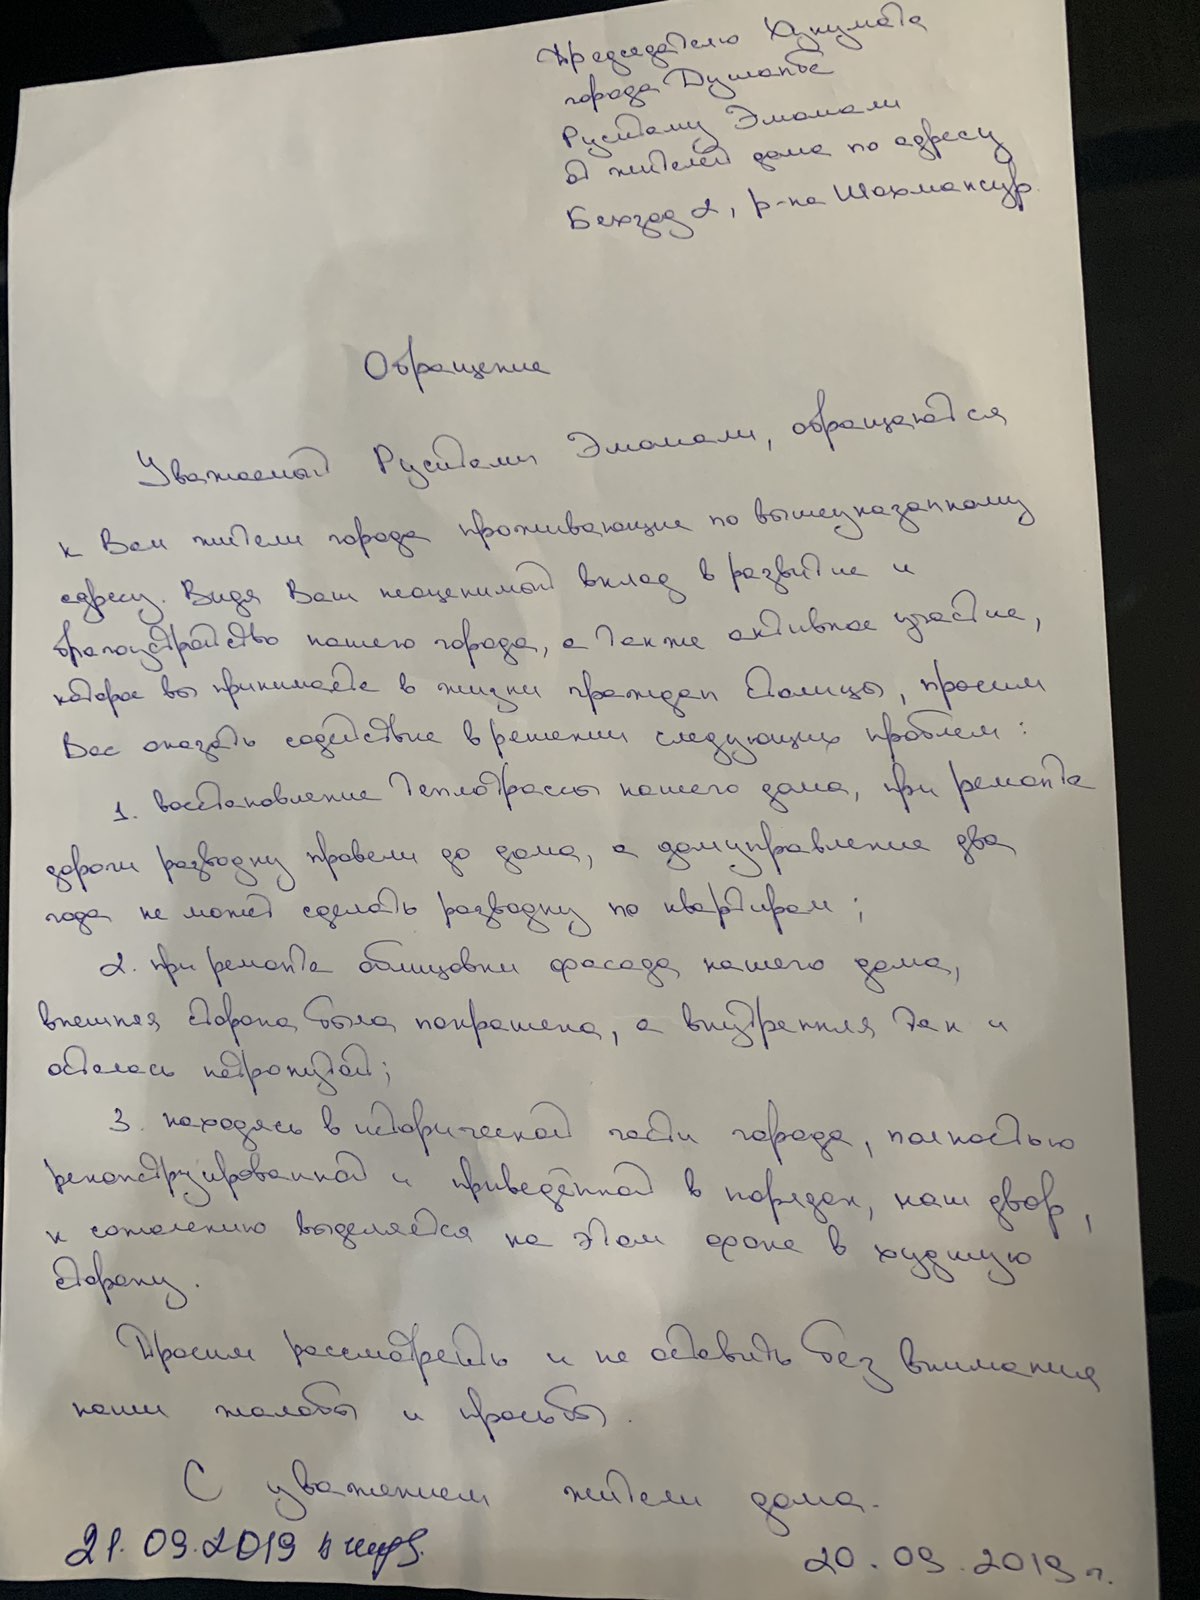 Председателю Хукумата
города Душанбе
Рустаму Эмомали
от жителей дома по адресу
Бехзад 2, р-на Шохмансур.
Обращение
Уважаемый Рустами Эмомали, обращаются
к Вам жители города проживающие по вышеуказанному
адресу. Видя Ваш неоценимый вклад в развитие и
благоустройство нашего города, а также активное участие,
которое вы принимаете в жизни граждан столицы, просим
Вас оказать содействие в решении следующих проблем:
1. восстановление теплотрассы нашего дома, при ремонте
дороги разводку провели до дома, а домуправление два
года не может сделать разводку по квартирам;
2. при ремонте облицовки фасада нашего дома,
внешняя сторона была покрашена, а внутренняя так и
осталась нетронутой;
3. находясь в исторической части города, полностью
реконструированной и приведённой в порядок, наш двор,
к сожалению выделяется на этом фоне в худшую
сторону.
Просим рассмотреть и не оставить без внимания
наши жалобы и просьбы.
С уважением жители дома.
21.09.2019
20.09.2019 г.